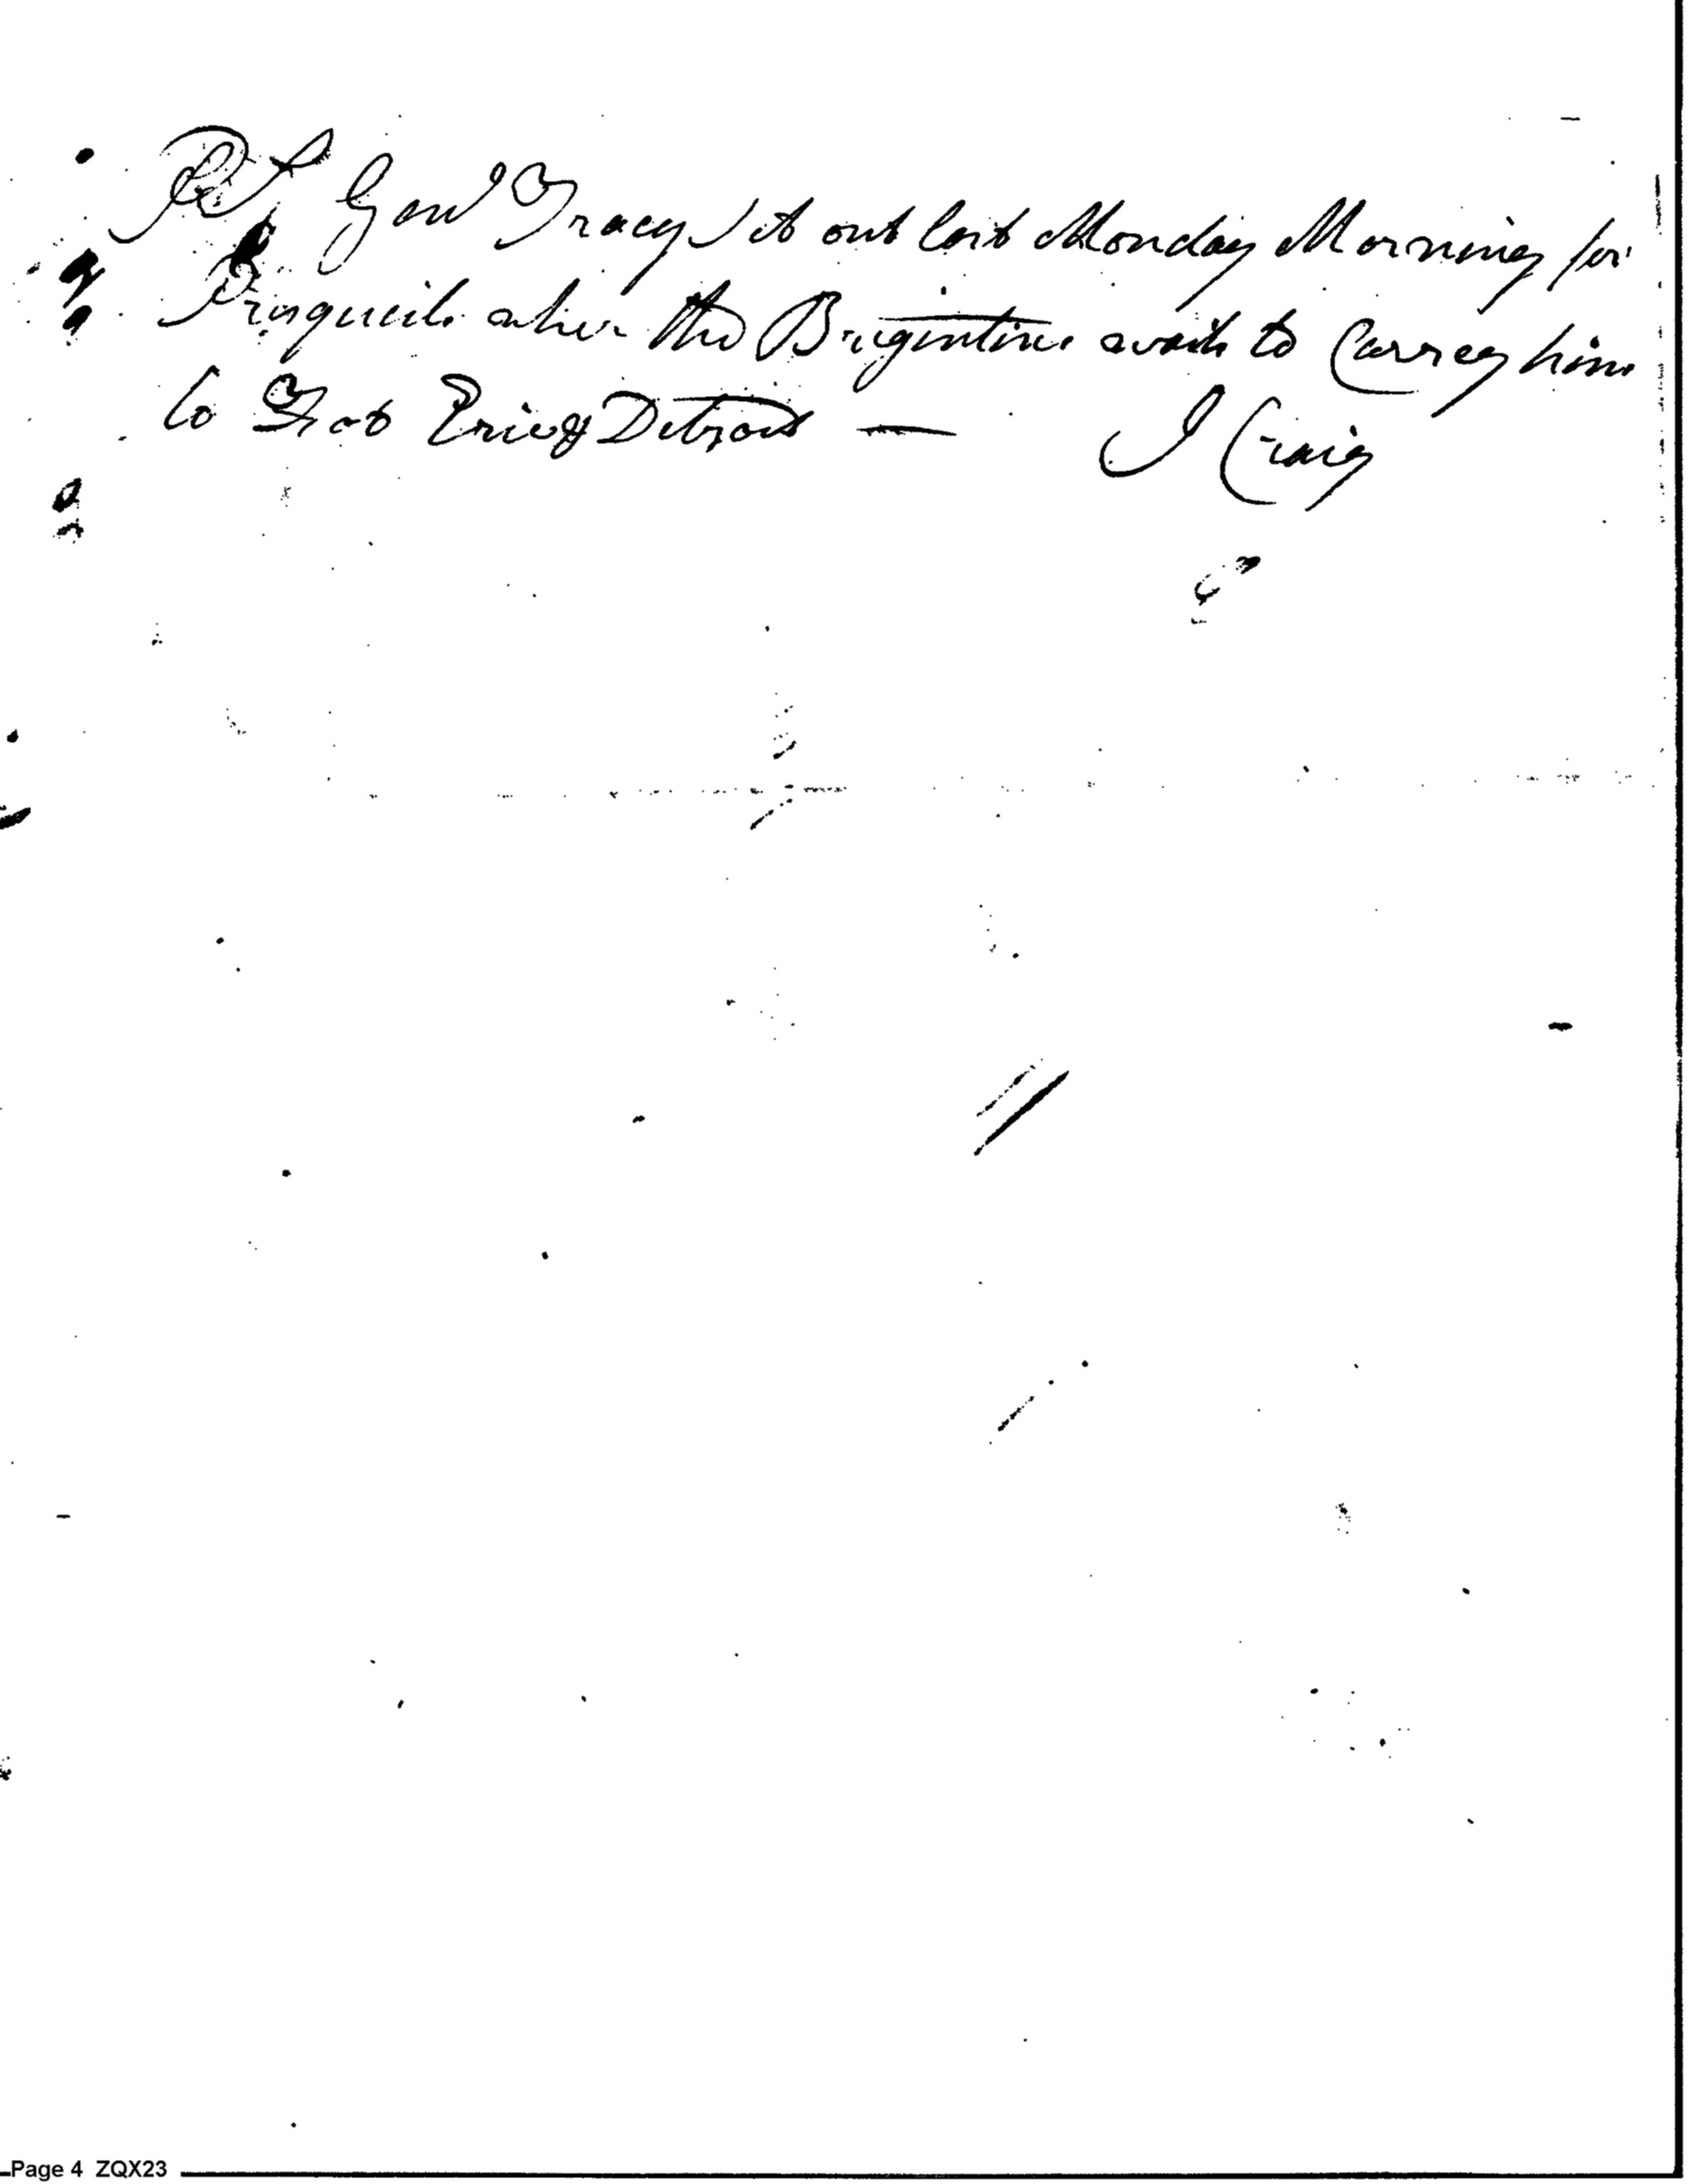 PS Genl Tracy Set out last Monday Morning for
Presqueile where the Brigantine waits to Carrey him
to Fort Erie & Detroit —
I Craig
Page 4 ZQX23